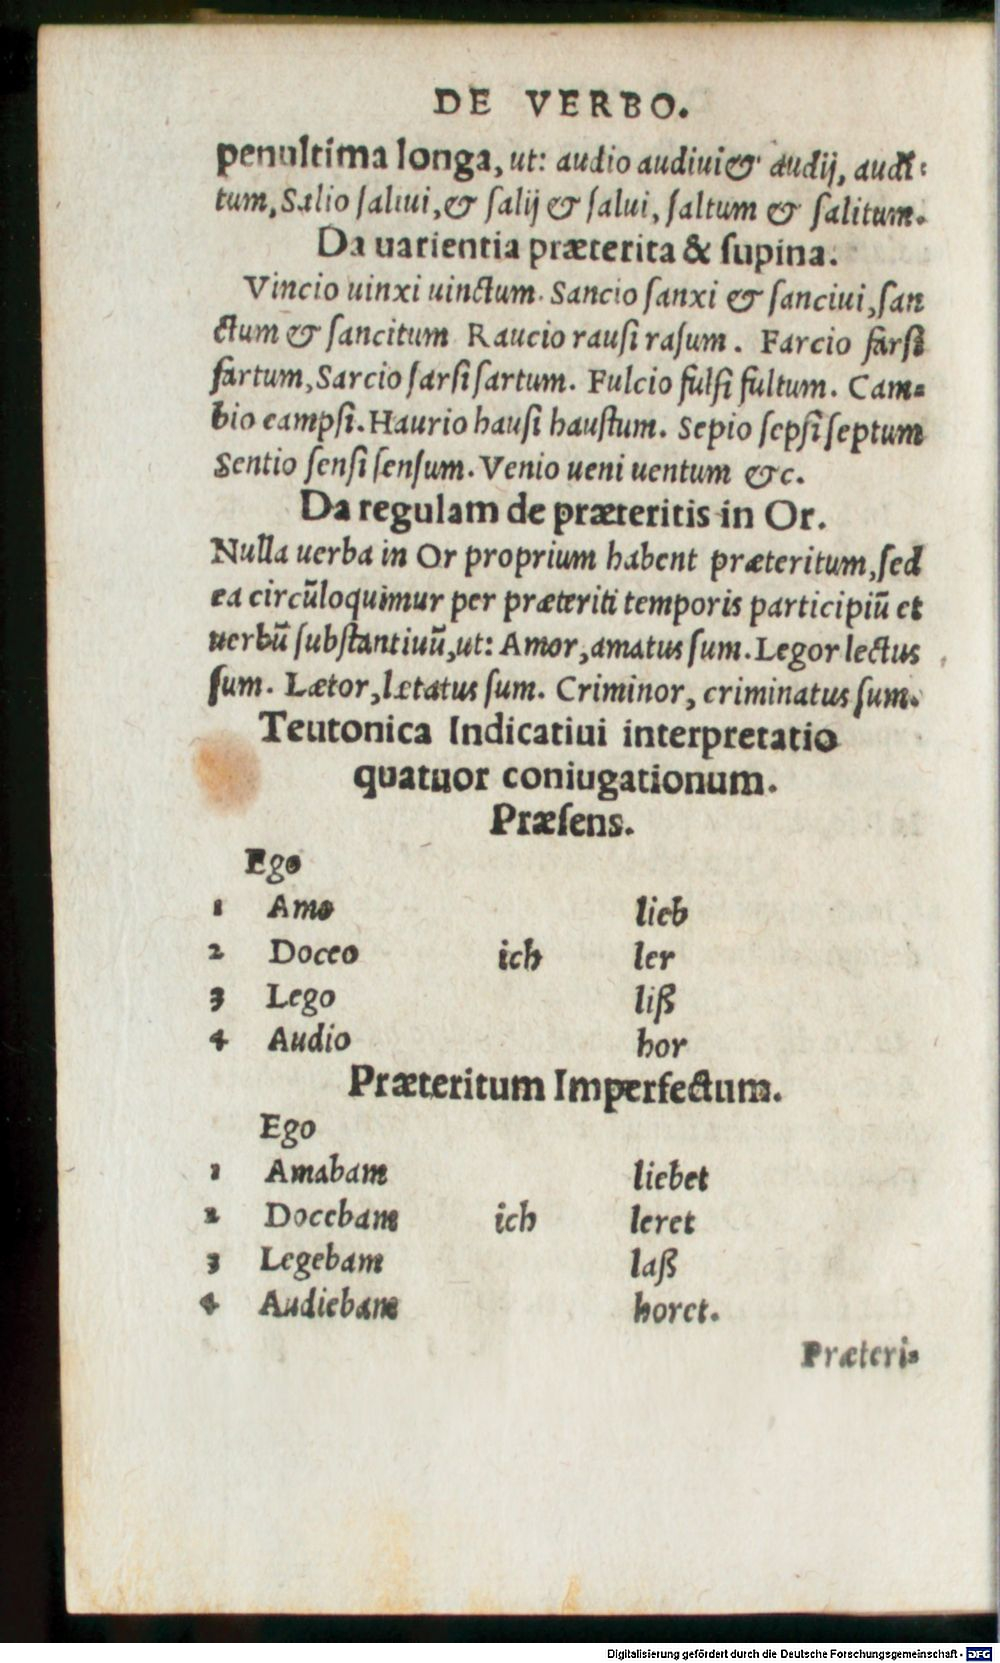 DE VERBO.
penultima longa, ut: audio audiui & audij, audi-
tum, Salio saliui, & salij & salui, saltum & salitum.
Da uarientia præterita & supina.
Vincio uinxi uinctum. Sancio sanxi & sanciui, san
ctum & sancitum Raucio rausi rasum. Farcio farsi
fartum, Sarcio sarsi sartum. Fulcio fulsi fultum. Cam-
bio campsi. Haurio hausi haustum. Sepio sepsi septum
Sentio sensi sensum. Venio ueni uentum &c.
Da regulam de præteritis in Or.
Nulla uerba in Or proprium habent præteritum, sed
ea circũloquimur per præteriti temporis participiũ et
uerbũ substantiuũ, ut: Amor, amatus sum. Legor lectus
sum. Lætor, lætatus sum. Criminor, criminatus sum.
Teutonica Indicatiui interpretatio
quatuor coniugationum.
Præsens.
Ego
1 Amo lieb
2 Doceo ich ler
3 Lego liß
4 Audio hor
Præteritum Imperfectum.
Ego
1 Amabam liebet
2 Docebam ich leret
3 Legebam laß
4 Audiebam horet.
Præteri-
Digitalisierung gefördert durch die Deutsche Forschungsgemeinschaft - DFG